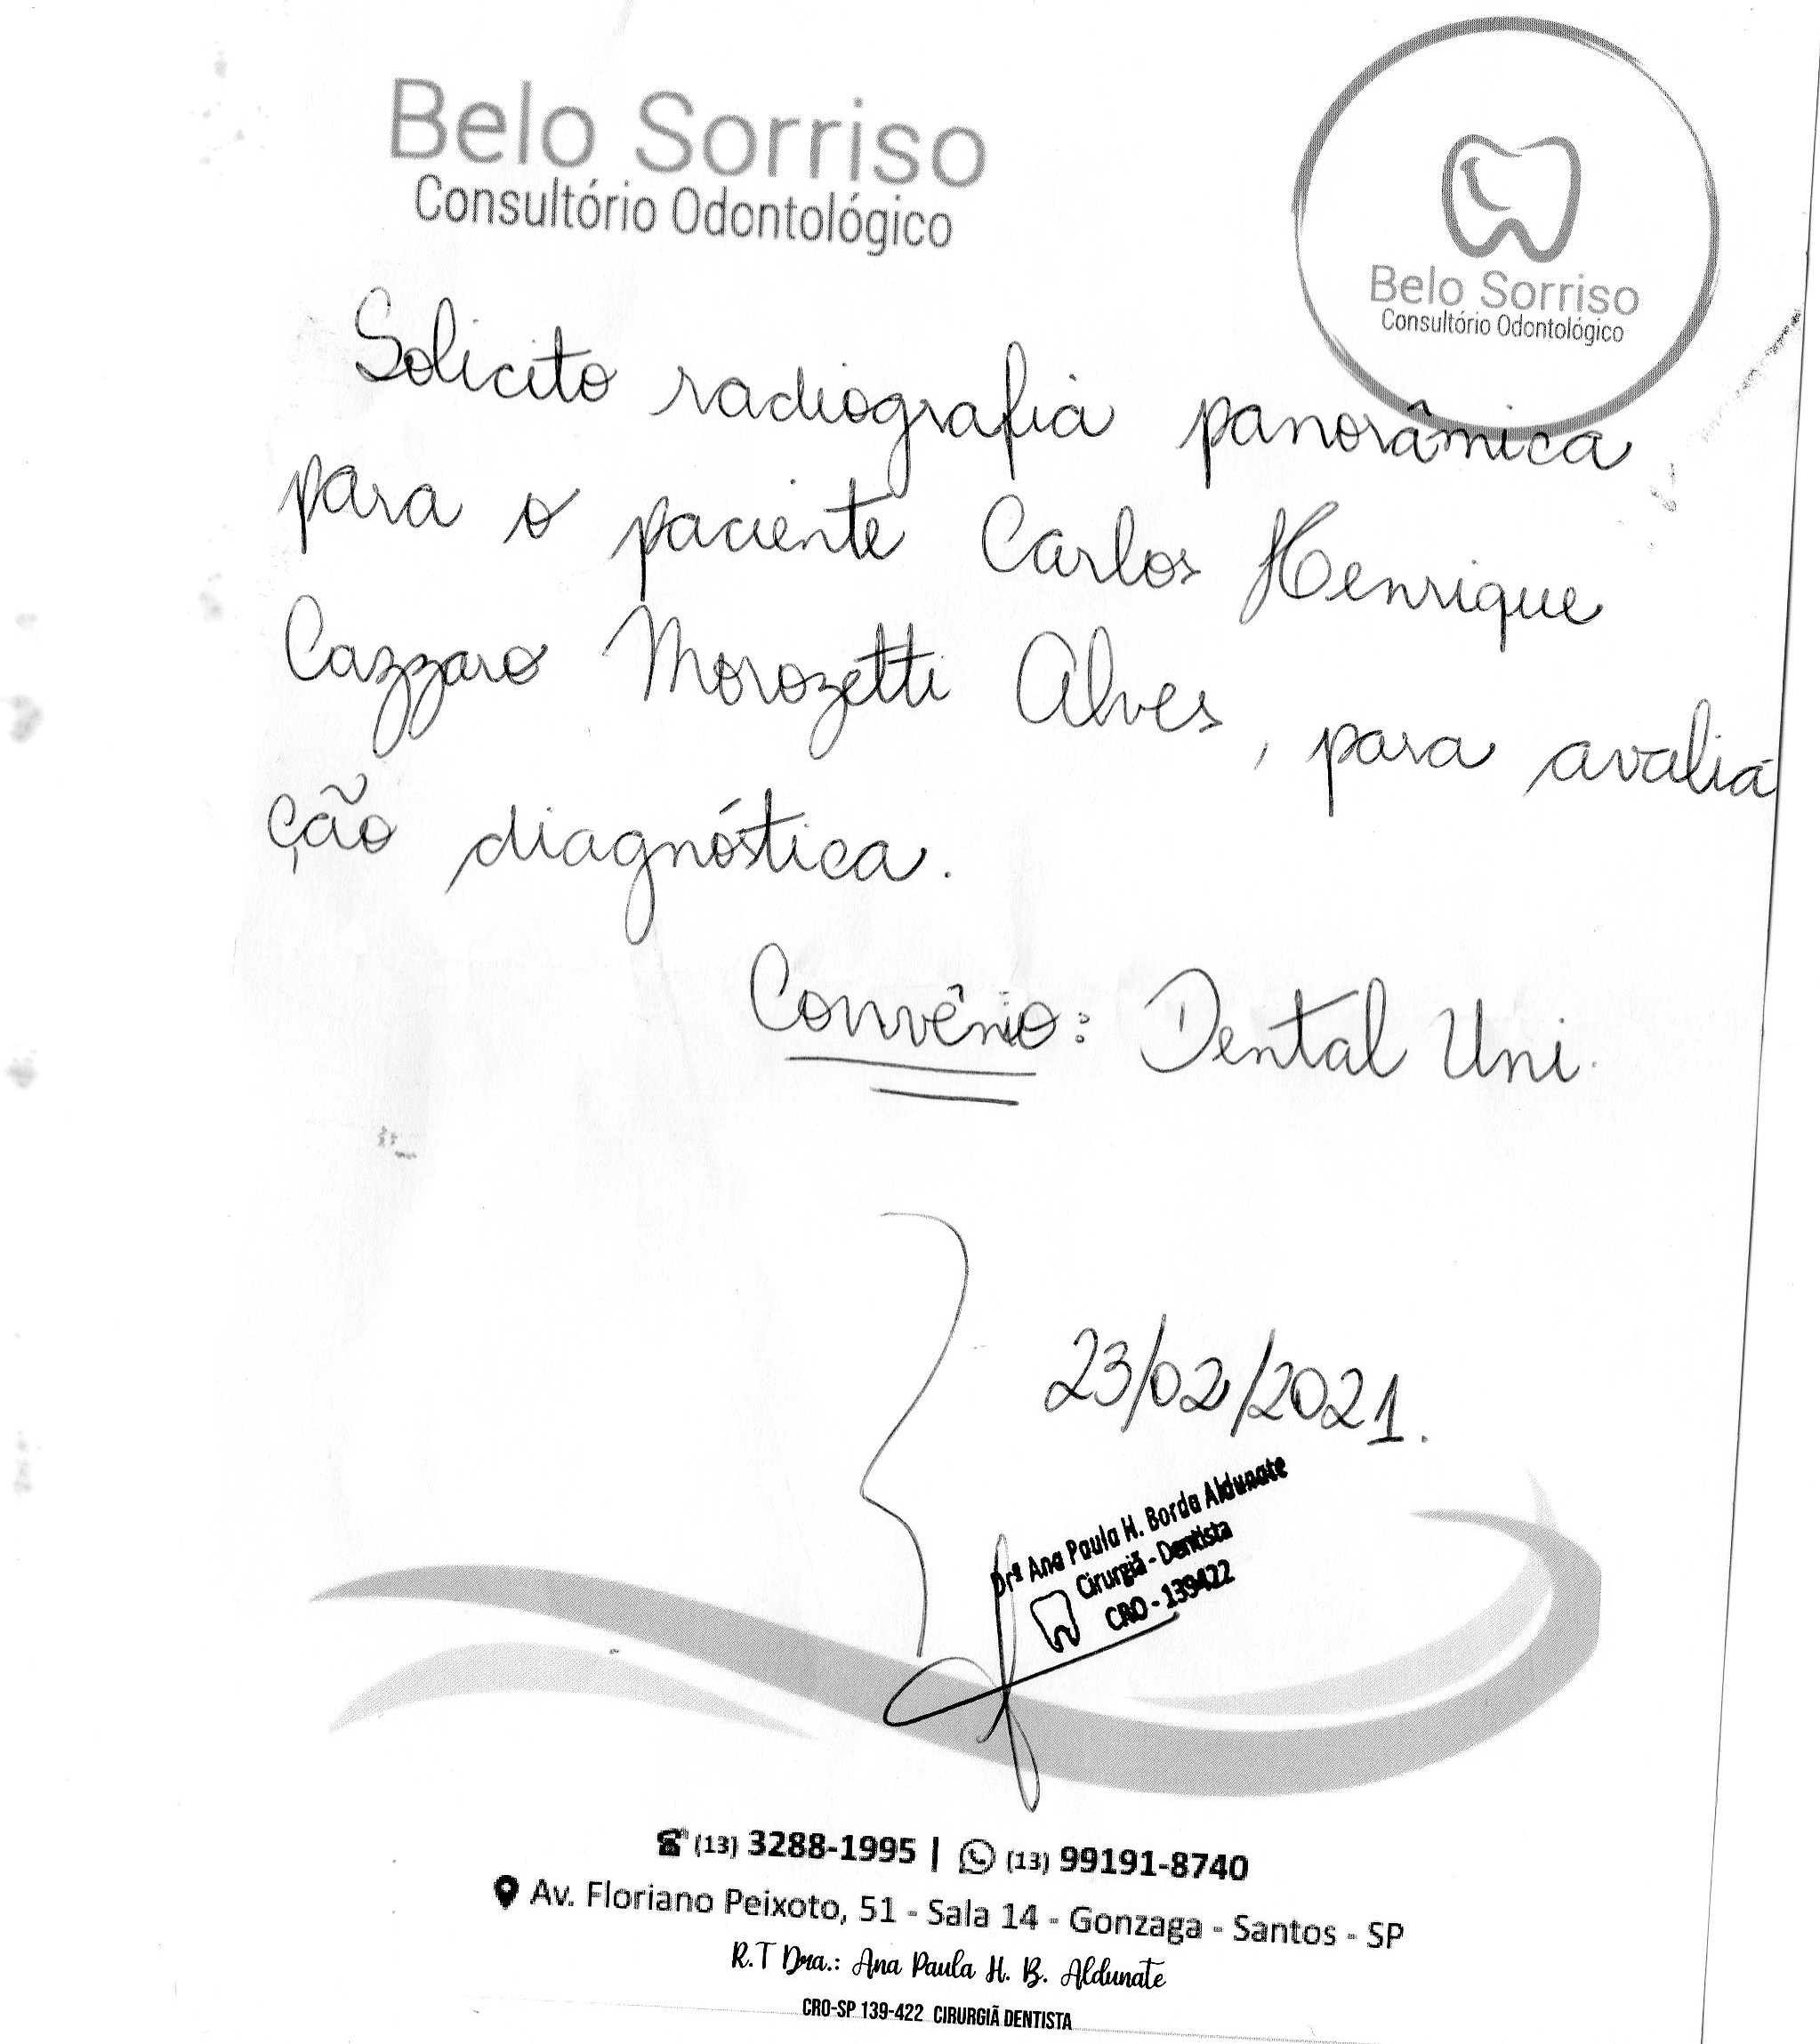 Belo Sorriso
Consultório Odontológico
Belo Sorriso
Consultório Odontológico
Solicito radiografia panorâmica
para o paciente Carlos Henrique
Cazzaro Morozetti Alves, para avalia
ção diagnóstica.
Convênio: Dental Uni.
23/02/2021.
Drª Ana Paula H. Borda Aldunate
Cirurgiã - Dentista
CRO - 139422
(13) 3288-1995 | (13) 99191-8740
Av. Floriano Peixoto, 51 - Sala 14 - Gonzaga - Santos - SP
R.T Dra.: Ana Paula H. B. Aldunate
CRO-SP 139-422 CIRURGIÃ DENTISTA